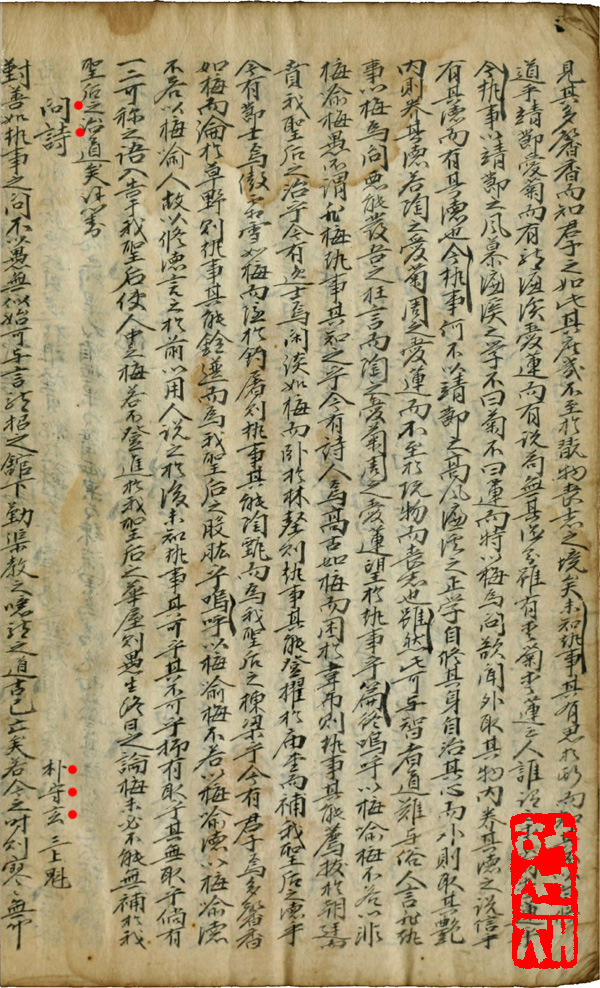 見其多馨香而知君子之如此其庶幾不至於翫物喪志之境矣未知執事其有見於斯而
道乎靖節愛菊而有詩濂溪愛蓮而有說苟無其德雖有愛菊愛蓮之人誰
今執事以靖節之風慕濂溪之學不曰菊不曰蓮而特以梅爲問欲聞外取其物內養其德之說信乎
有其德而有其德也今執事何不以靖節之高風濂溪之正学自修其身自治其心而外則取其艶
內則养其德若陶之愛菊周之愛蓮而不至於玩物而喪志也雖然此可与智者道難与俗人言執
事以梅爲問愚能發吾之狂言而陶之愛菊周之愛蓮望於執事乎篇終嗚呼以梅喩梅不若以非
梅喩梅愚所謂非梅執事其知之乎今有詩人焉高古如梅而困於韋布則執事其能薦拔於朝廷
賁我聖后之治乎今有逸士焉閑淡如梅而卧於林壑則執事其能登擢於庙堂而補我聖后之德乎
今有節士焉傲霜雪如梅而隱於釣屠則執事其能陶甄而爲我聖后之棟梁乎今有君子焉多馨香
如梅而淪於草野則執事其能銓選而爲我聖后之股肱乎嗚呼以梅喩梅不若以梅喩德以梅喩德
不若以梅喩人故以修德言之於前以用人說之於後未知執事其可乎其不可乎抑有取乎其無取乎倘有
一二可称之語入告于我聖后使人中之梅若不登進於我聖后之華屋則愚生終日之論梅未必不能無補於我
聖后之治道矣謹對
問詩
朴守玄 三上魁
對善如執事之問不以愚無似始可与言詩招之館下勤渠敎之噫詩之道古已亡矣若今之时則寥寥無聞